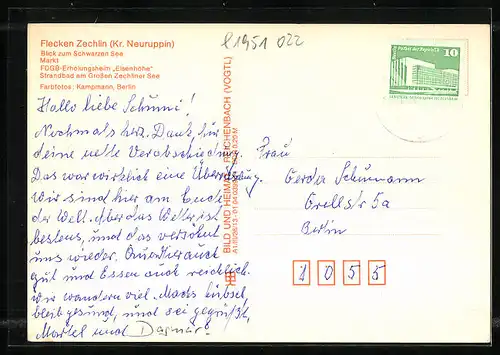 Flecken Zechlin (Kr. Neuruppin)
Blick zum Schwarzen See
Markt
FDGB-Erholungsheim „Elsenhöhe"
Strandbad am Großen Zechliner See
Farbfotos: Kampmann, Berlin
l1951 022
10
Hallo liebe Schunni!
Nochmals herz. Dank, für
deine nette Verabschiedung.
Das war wirklich eine Überraschung.
Wir sind hier am Ende
der Welt. Aber das Wetter ist
bestens, und das versöhnt
uns wieder. Quartier auch
gut und Essen auch reichlich.
Wir wandern viel. Machs hübsch,
bleib gesund, und sei gegrüßt,
Martel und Dagmar
BILD UND HEIMAT REICHENBACH (VOGTL)
Frau
Gerda Schumann
Orellstr 5a
Berlin
1055